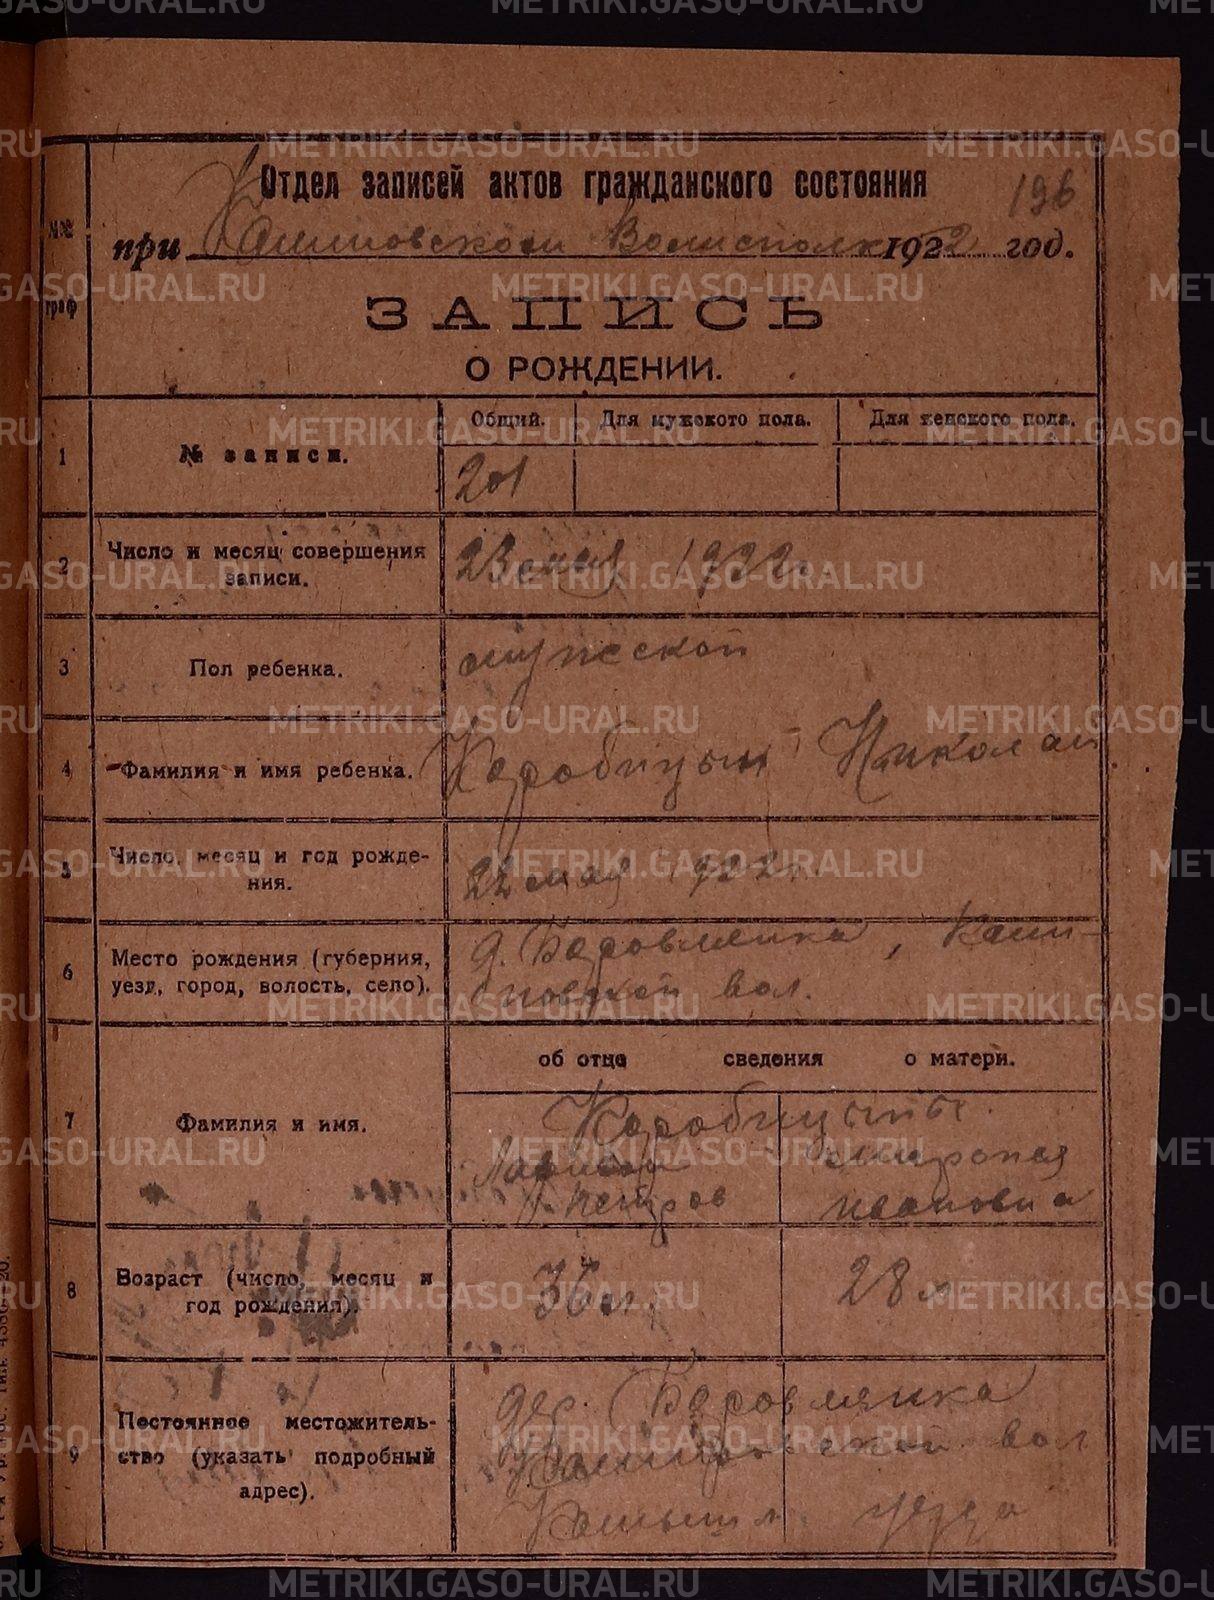 METRIKI.GASO-URAL.RU
Отдел записей актов гражданского состояния
196
при Кашиповском Волисполк 1922 год.
№№ граф
ЗАПИСЬ
О РОЖДЕНИИ.
1 № записи. Общий. Для мужского пола. Для женского пола.
201
2 Число и месяц совершения записи. 23 мая 1922 г.
3 Пол ребенка. мужской
4 Фамилия и имя ребенка. Коробицын Николай
5 Число, месяц и год рожде-
ния. 22 мая 1922 г.
6 Место рождения (губерния, д. Боровлянка,
уезд, город, волость, село). вол.
об отце сведения о матери.
7 Фамилия и имя. Коробицыны
Петров Ивановна
8 Возраст (число, месяц и
год рождения). 36 л. 28 л.
9 Постоянное местожитель-
ство (указать подробный
адрес). дер. Боровлянка
вол
Камышл. уезда